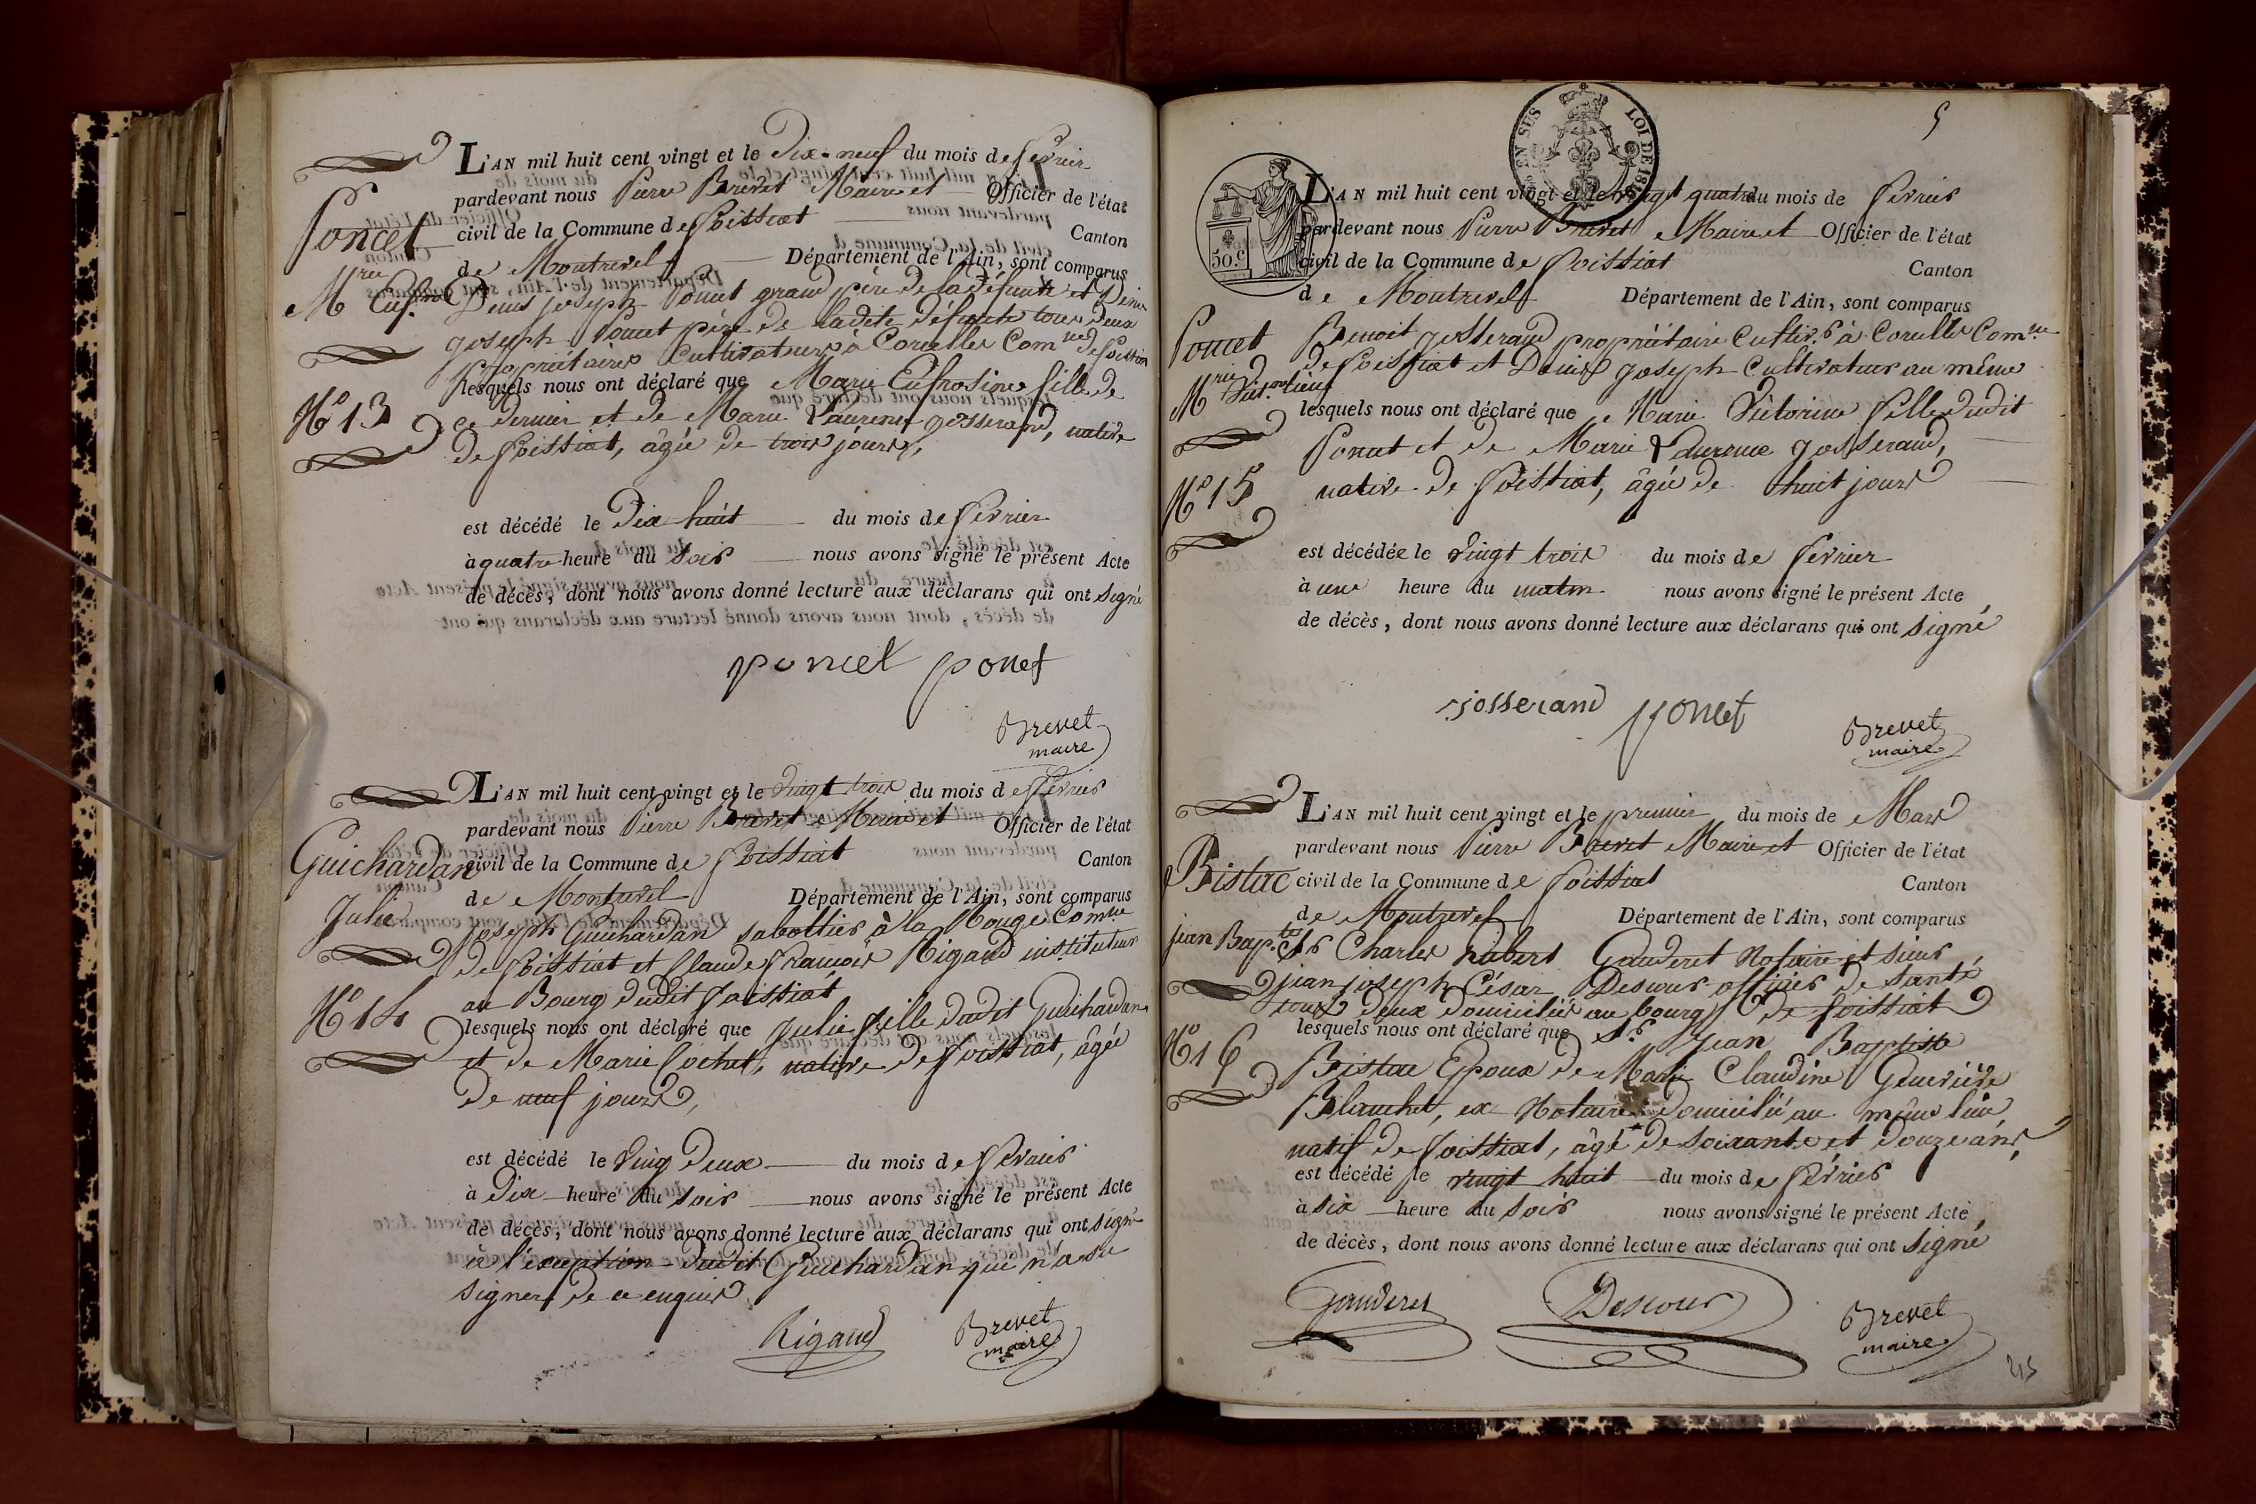 L'AN mil huit cent vingt et le Dix-neuf du mois de fevrier
pardevant nous Pierre Brevet Maire et Officier de l'état
Poncet
civil de la Commune de foissiat Canton
de Montrevel Département de l'Ain, sont comparus
Mrie Eufne
Denis joseph Poncet grand père de la défunte et Denis
joseph Poncet père de ladite défunte tous deux
propriétaires Cultivateurs à Corcelles Comne de foissiat
lesquels nous ont déclaré que Marie Eufrosine fille de
N° 13
ce dernier et de Marie Laurence josserand, native
de foissiat, âgée de trois jours,
est décédé le Dix huit du mois de fevrier
à quatre heure du soir nous avons signé le présent Acte
de décès, dont nous avons donné lecture aux déclarans qui ont signé
poncet poncet
Brevet
maire
L'AN mil huit cent vingt et le vingt trois du mois de fevrier
pardevant nous Pierre Brevet Maire et Officier de l'état
Guichardan
civil de la Commune de foissiat Canton
de Montrevel Département de l'Ain, sont comparus
Julie
joseph Guichardan sabottier à la Rouge Comne
de foissiat et Claude françois Rigaud instituteur
au Bourg dudit foissiat
N° 14
lesquels nous ont déclaré que julie fille dudit Guichardan
et de Marie Cochet, native de foissiat, âgée
de neuf jours,
est décédé le vingt Deux du mois de fevrier
à Dix heure du soir nous avons signé le présent Acte
de décès, dont nous avons donné lecture aux déclarans qui ont signé
à l'exception dudit Guichardan qui n'a su
signer de ce enquis
Rigaud
Brevet
maire
5
EN SUS
LOI DE 1816
50.c
L'AN mil huit cent vingt et le vingt quatre du mois de fevrier
pardevant nous Pierre Brevet Maire et Officier de l'état
civil de la Commune de foissiat Canton
de Montrevel Département de l'Ain, sont comparus
Poncet
Benoit josserand propriétaire Cultivr à Corcelles Comne
de foissiat et Denis joseph Cultivateur au même
Mrie Vict.ne
lieu
lesquels nous ont déclaré que Marie Victorine fille dudit
Poncet et de Marie Laurence josserand,
N° 15
native de foissiat, âgée de huit jours
est décédée le vingt trois du mois de fevrier
à une heure du matin nous avons signé le présent Acte
de décès, dont nous avons donné lecture aux déclarans qui ont signé
josserand poncet
Brevet
maire
L'AN mil huit cent vingt et le premier du mois de Mars
pardevant nous Pierre Brevet Maire et Officier de l'état
Bistac
civil de la Commune de foissiat Canton
de Montrevel Département de l'Ain, sont comparus
jean Bap.te
Sr Charles hubert Gauderet Notaire et sieur
jean joseph César Descour officier de santé
tous deux domiciliés au bourg de foissiat
N° 16
lesquels nous ont déclaré que Sr Jean Baptiste
Bistac Epoux de Marie Claudine Genevieve
Blanchet, ex Notaire domicilié au même lieu
natif de foissiat, âgé de soixante et douze ans,
est décédé le vingt huit du mois de févrièr
à six heure du soir nous avons signé le présent Acte
de décès, dont nous avons donné lecture aux déclarans qui ont signé
Gauderet
Descour
Brevet
maire